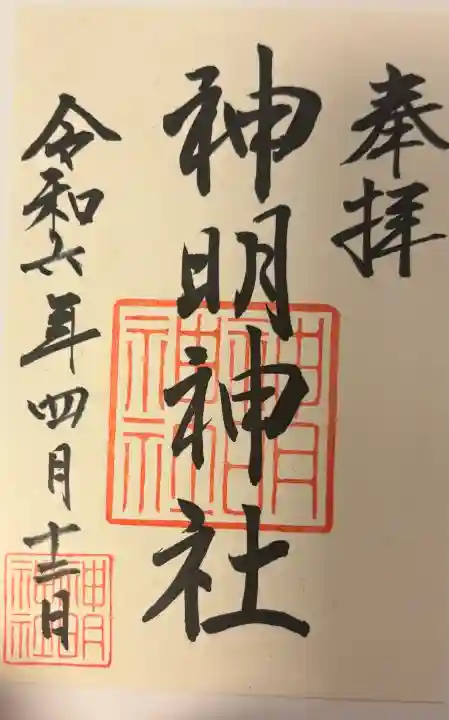 奉拝
神明神社
神明神社
令和六年四月十二日
神明神社